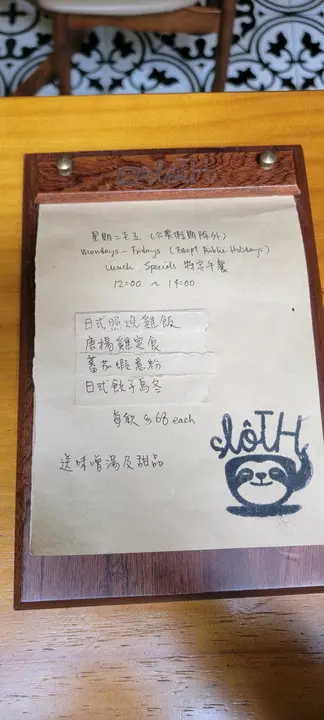 slôTH
星期二至五 (公眾假期除外)
Mondays - Fridays (Except Public Holidays)
Lunch Specials 特定午餐
12:00 ~ 14:00
日式照燒雞飯
唐揚雞定食
蕃茄蝦意粉
日式餃子烏冬
每款 $68 each
slôTH
送味噌湯及甜品